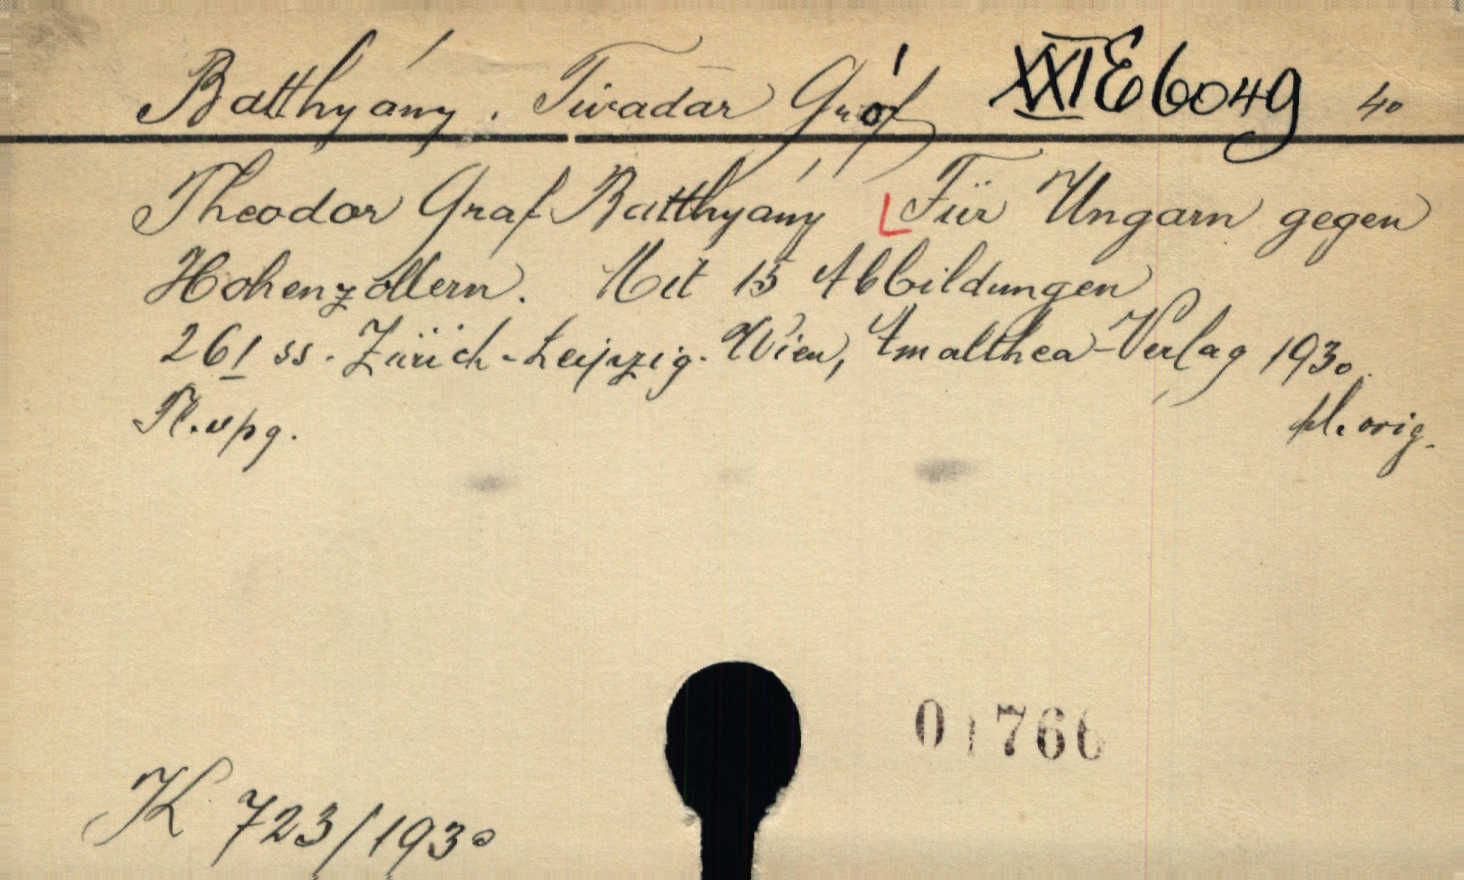 Batthyány, Tivadar Gróf XXI E 6049 40
Theodor Graf Batthyány Für Ungarn gegen
Hohenzollern. Mit 15 Abbildungen
261 ss. Zürich-Leipzig-Wien, Amalthea-Verlag 1930.
kl. orig.
01766
K 723/1930